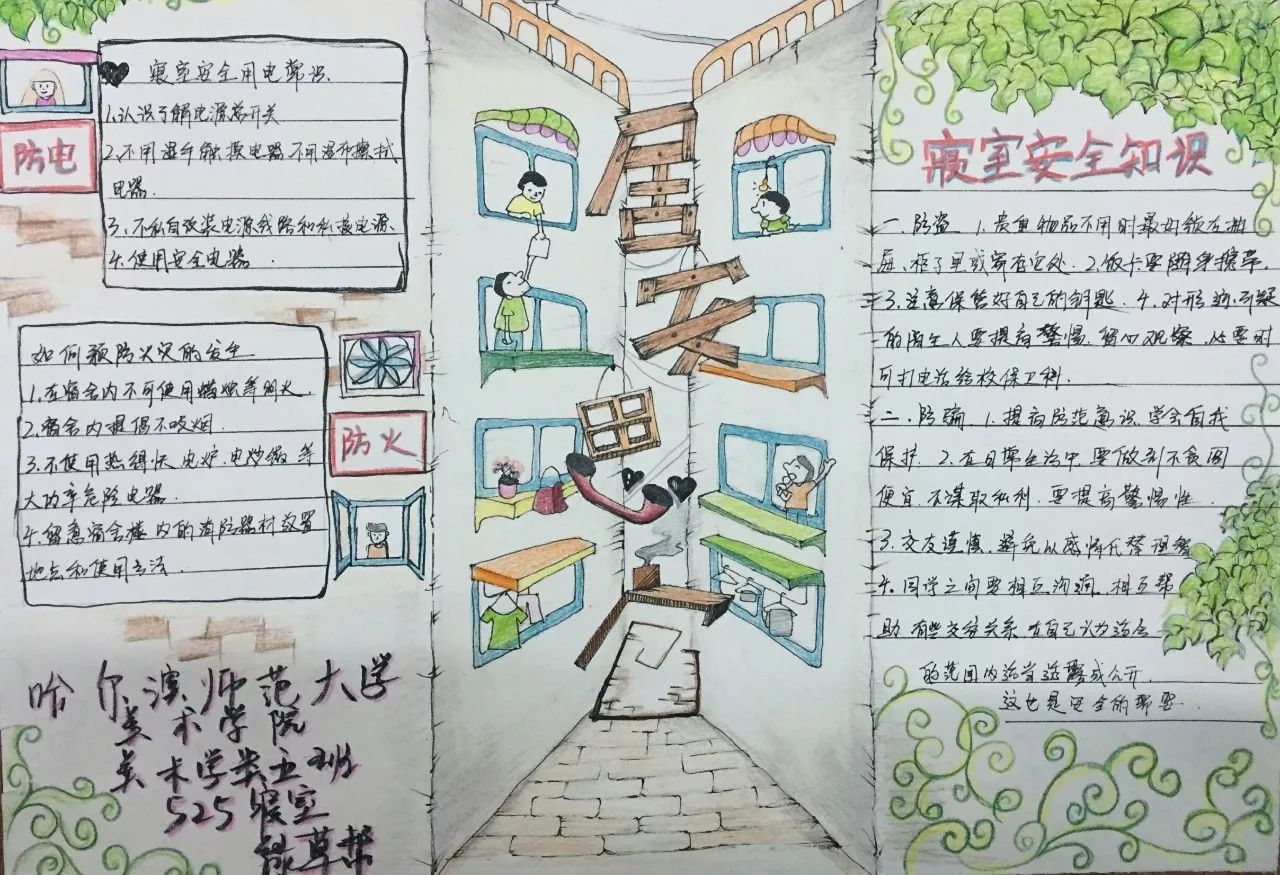 防电
寝室安全用电常识
1.认识了解电源总开关
2.不用湿手触摸电器,不用湿布擦拭
电器.
3.不私自改装电源线路和私接电源.
4.使用安全电器.
如何预防火灾的发生
1.在宿舍内不可使用蜡烛等明火.
2.宿舍内提倡不吸烟
3.不使用热得快、电炉、电炒锅等
大功率危险电器.
4.留意宿舍楼内的消防器材放置
地点和使用方法.
防火
哈尔滨师范大学
美术学院
美术学类五班
525寝室
绿草帮
寝室安全知识
一.防盗 1.贵重物品不用时最好锁在抽
屉、柜子里或寄存它处. 2.饭卡要随身携带.
3.注意保管好自己的钥匙. 4.对形迹可疑
的陌生人要提高警惕,留心观察,必要时
可打电话给校保卫科.
二.防骗 1.提高防范意识,学会自我
保护. 2.在日常生活中,要做到不贪图
便宜、不谋取私利,要提高警惕性
3.交友谨慎,避免以感情代替理智
4.同学之间要相互沟通、相互帮
助,有些交往关系,在自己认为适合
的范围内适当透露或公开.
这也是安全的需要.